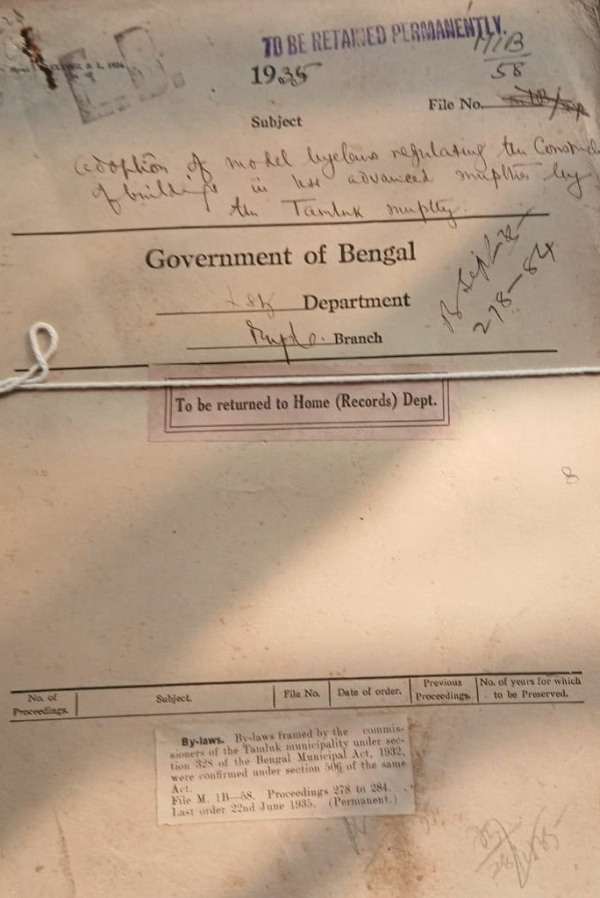 TO BE RETAINED PERMANENTLY.
1935
M1B
58
File No.
Subject
adoption of model byelaws regulating the Constru
of buildings in less advanced muplties by
the Tamluk muplty.
Government of Bengal
LSG Department
Branch
B Sept
278-84
To be returned to Home (Records) Dept.
8
No. of Proceedings.
Subject.
File No.
Date of order.
Previous Proceedings.
No. of years for which to be Preserved.
By-laws. By-laws framed by the commis-
sioners of the Tamluk municipality under sec-
tion 328 of the Bengal Municipal Act, 1932,
were confirmed under section 506 of the same
Act.
File M. 1B—58. Proceedings 278 to 284.
Last order 22nd June 1935. (Permanent.)